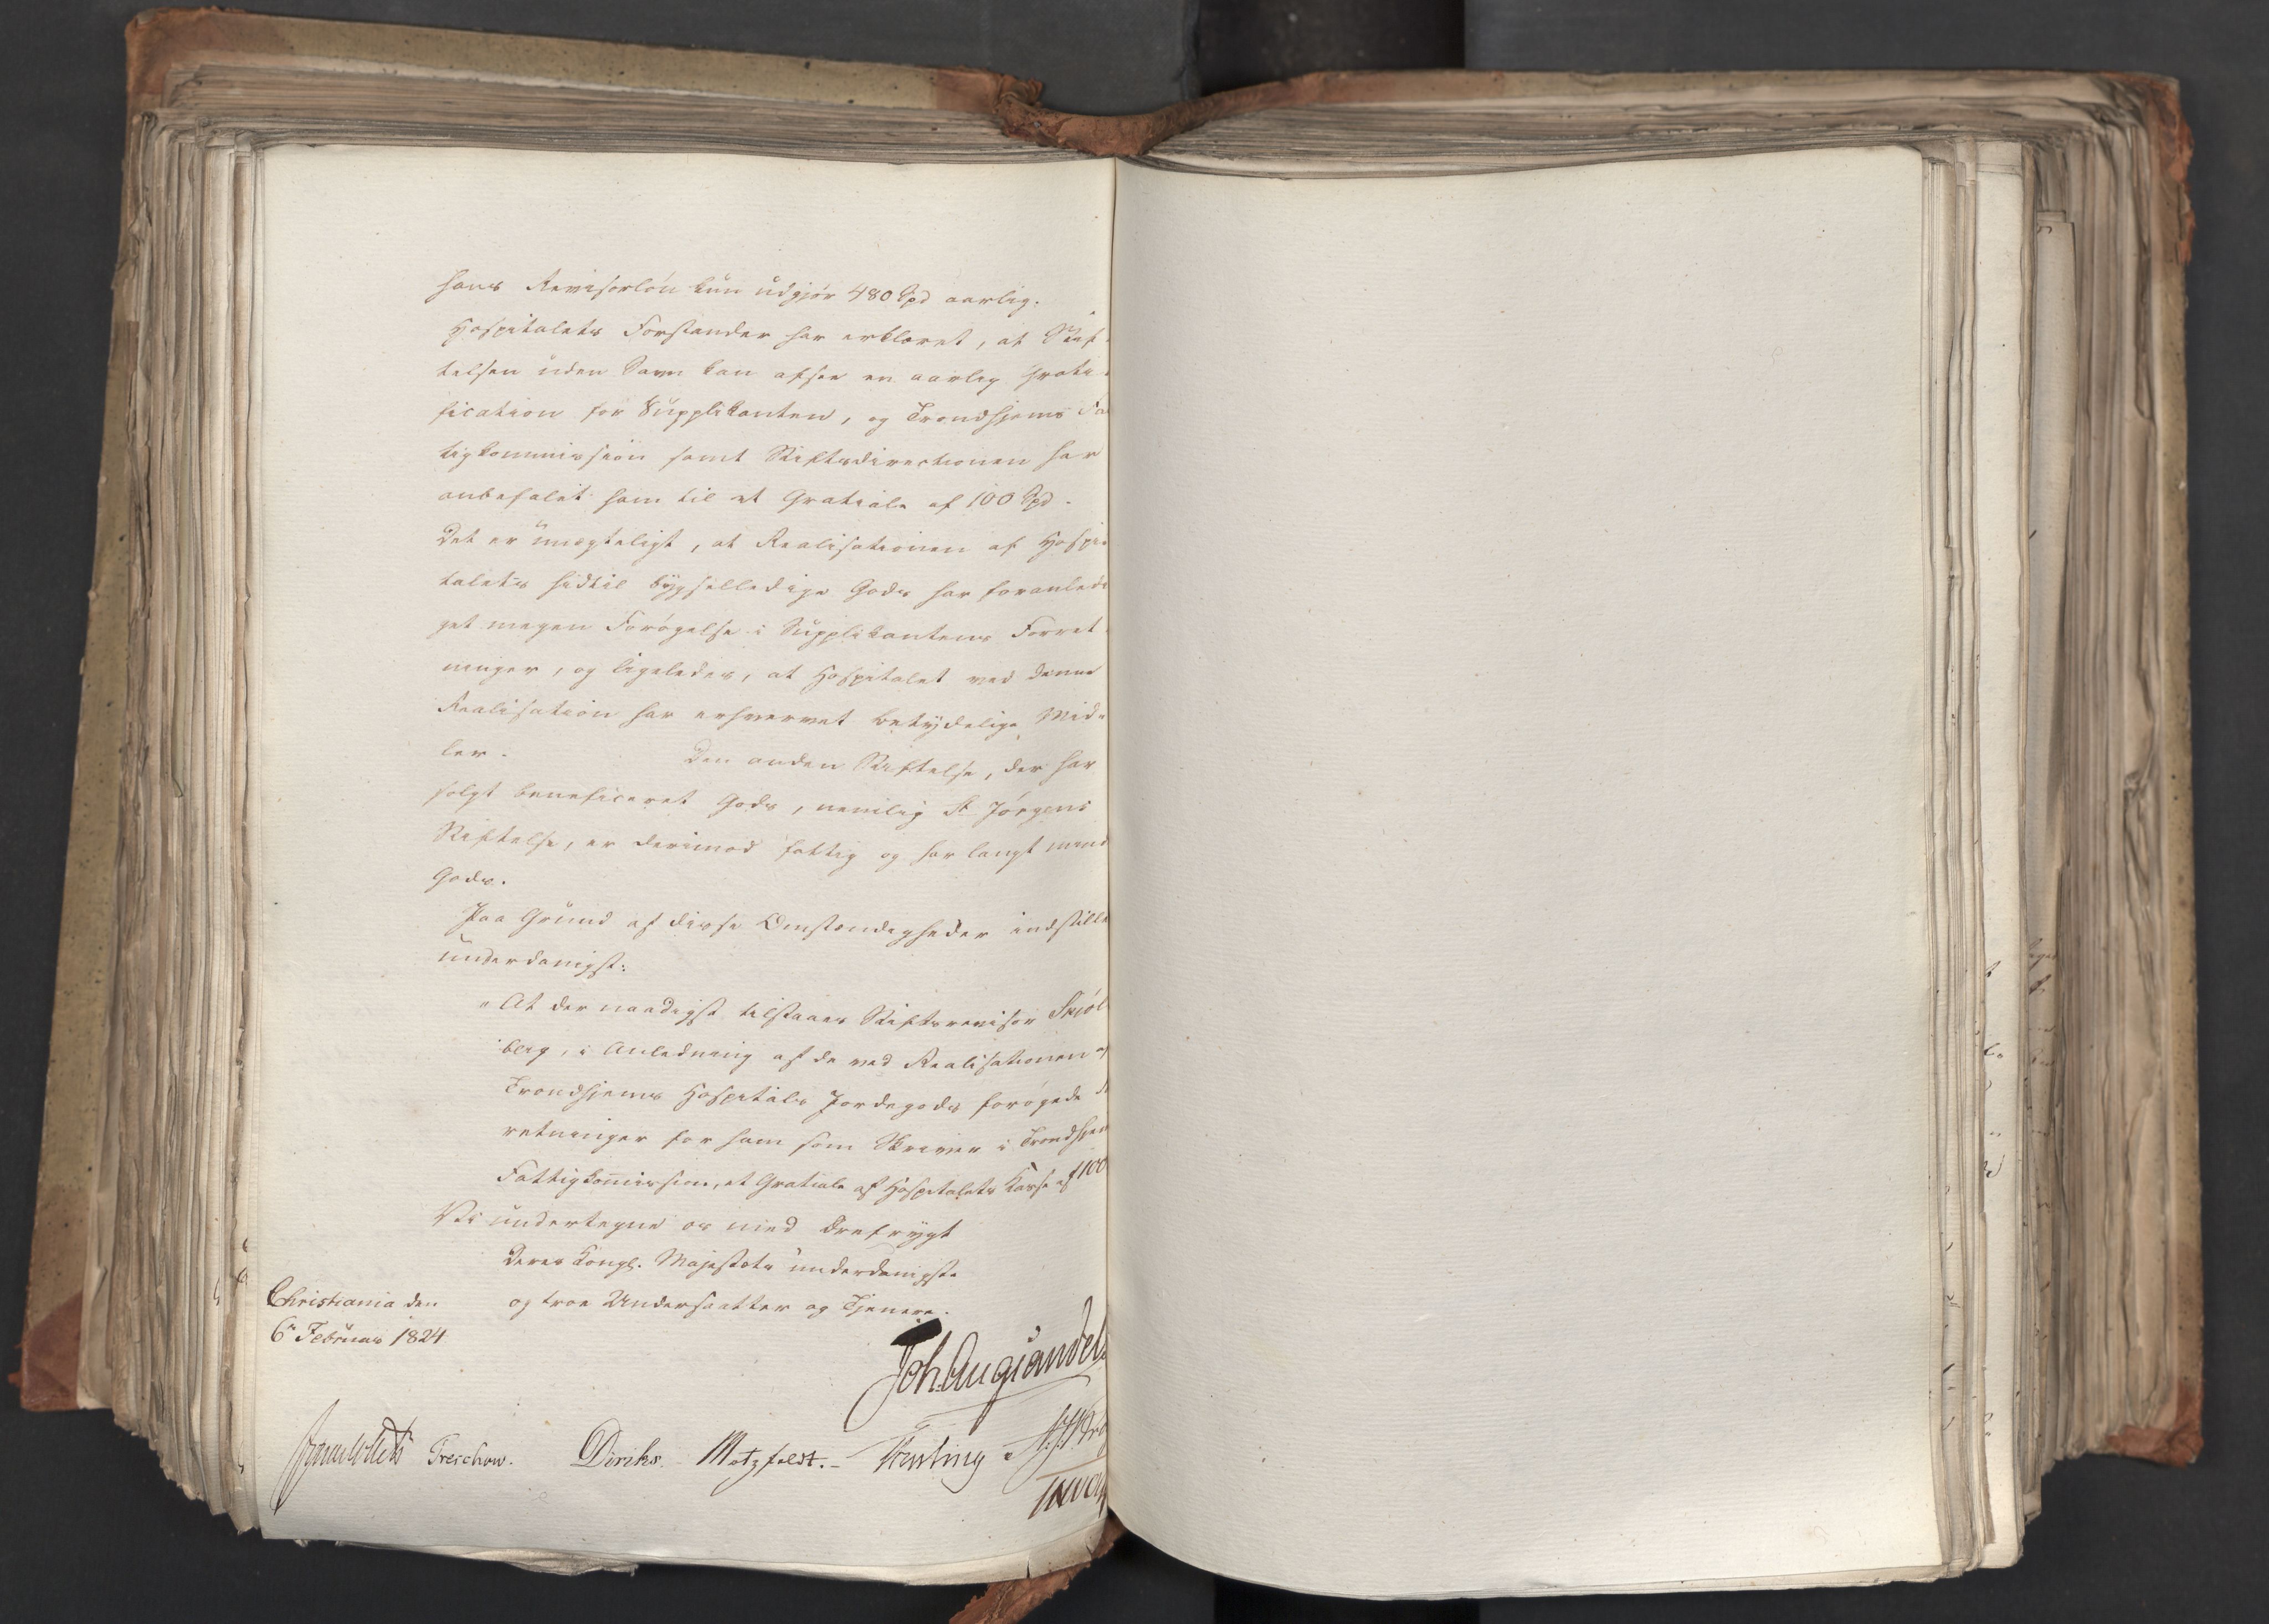 hans Revisorlön kun udgjör 480 Spd aarlig.
Hospitalets Forstander har erklæret, at Stif-
telsen uden Savn kan afsee en aarlig Grati-
fication for Supplikanten, og Trondhjems Fat
tigkommission samt Stiftsdirectionen har
anbefalet ham til et Gratiale af 100 Spd.
Det er unægteligt, at Realisationen af Hospi-
talets hidtil bygselledige Gods har foranledi
get megen Forögelse i Supplikantens Forret-
ninger, og ligeledes, at Hospitalet ved denne
Realisation har erhvervet betydelige Mid-
ler. Den anden Stiftelse, der har
solgt beneficeret Gods, nemlig St Jörgens
Stiftelse, er derimod fattig og har langt mind
Gods.
Paa Grund af disse Omstændigheder indstille
underdanigst:
"At der naadigst tilstaaes Stiftsrevisor Skjöl
berg, i Anledning af de ved Realisationen af
Trondhjems Hospitals Jordegods forögede
retninger for ham som Skriver i Trondhjem
Fattigkom̄ission, et Gratiale af Hospitalets Kasse af 100
Vi undertegne os med Ærefrygt
Deres Kongl. Majestæts underdanigste
og troe Undersaatter og Tjenere.
Christiania den
6te Februar 1824
Joh. Aug. Sandels
Treschow. Diriks. Motzfeldt.